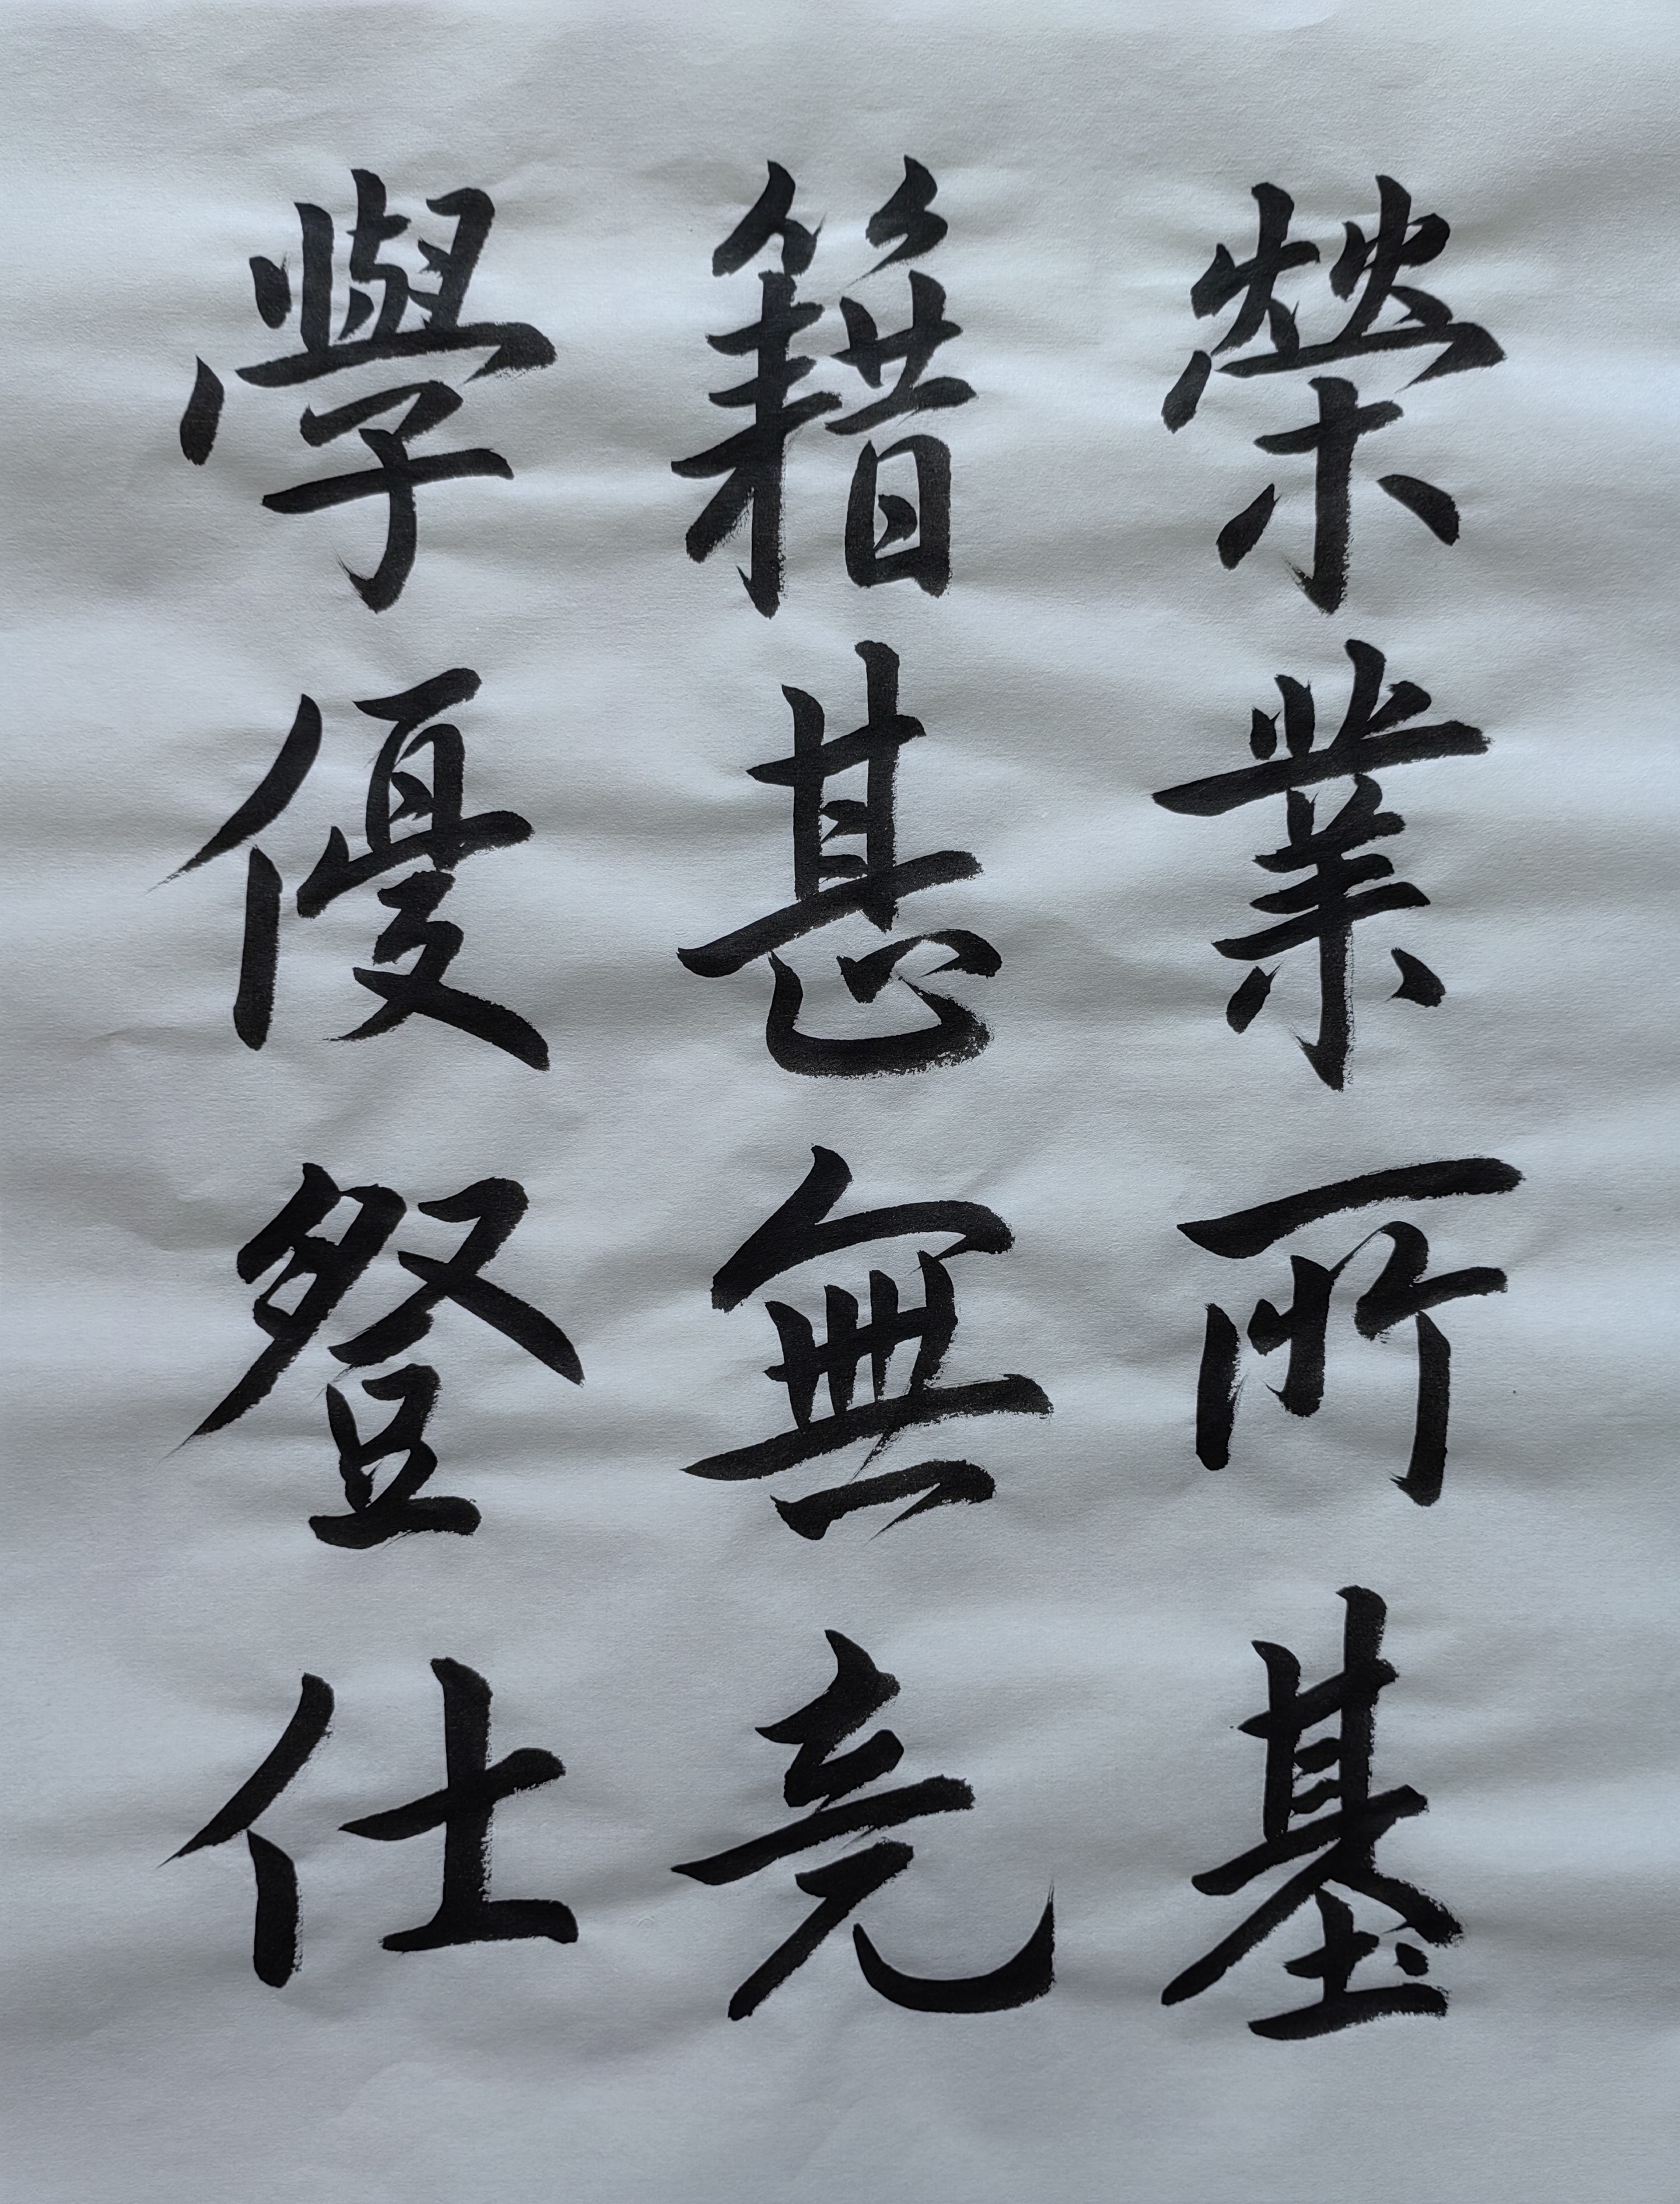 榮業所基
籍甚無竟
學優登仕